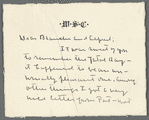 M·S·C·
Dear Blanche and
It was sweet of you
to remember the
it happened to be an un-
usually pleasant one, among
other things I got a very
nice letter from